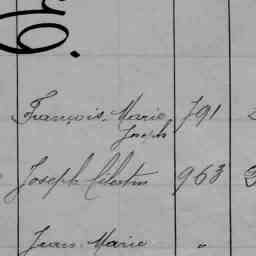 François-Marie, 791
Joseph
Joseph Célestin 963
Jean-Marie "